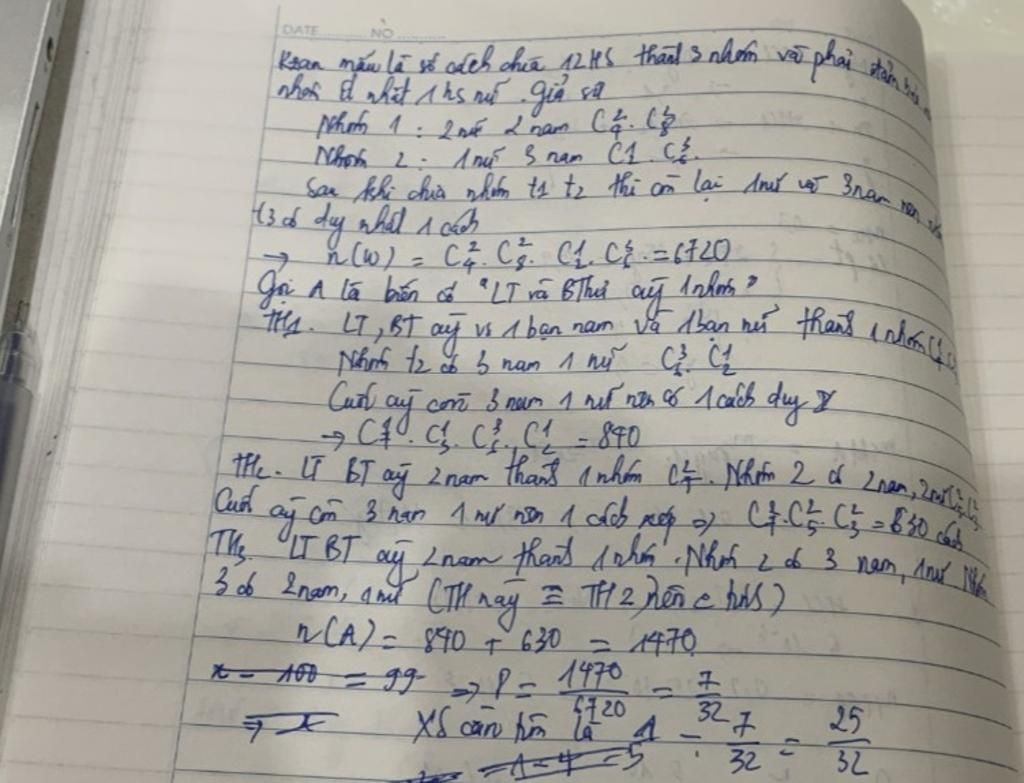 DATE NO
Kgan mẫu là số cách chia 12HS thành 3 nhóm và phải đảm bảo
nhóm ít nhất 1 hs nữ. Giả sử
Nhóm 1 : 2 nữ 2 nam C²₄ . C²₈
Nhóm 2 : 1 nữ 3 nam C¹₂ . C³₆.
Sau khi chia nhóm t1 t2 thì còn lại 1 nữ và 3 nam nên
t3 có duy nhất 1 cách
→ n(w) = C²₄ . C²₈ . C¹₂ . C³₆ . = 6720
Gọi A là biến cố "LT và BThư cùng 1 nhóm"
TH1. LT, BT cùng vs 1 bạn nam và 1 bạn nữ thành 1 nhóm
Nhóm t2 có 3 nam 1 nữ C³₆ . C¹₂
Cuối cùng còn 3 nam 1 nữ nên có 1 cách duy
→ C¹₇ . C¹₃ . C³₆ . C¹₂ = 840
TH2. LT BT cùng 2 nam thành 1 nhóm C²₇ . Nhóm 2 có 2 nam, 2 nữ C²₅ . C²₃
Cuối cùng còn 3 nam 1 nữ nên 1 cách xếp => C²₇ . C²₅ . C²₃ = 630 cách
TH3. LT BT cùng 2 nam thành 1 nhóm . Nhóm 2 có 3 nam, 1 nữ Nhóm
3 có 2 nam, 2 nữ (TH này ≡ TH2)
n(A) = 840 + 630 = 1470
x = 100 = 99 => P = 1470/6720 = 7/32
=> x XS cần tìm là 1 - 7/32 = 25/32
= 1 - 4 = 5